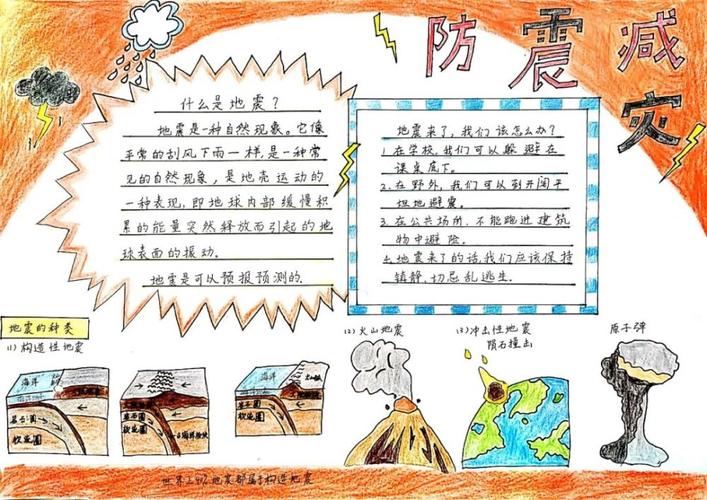 防震减
灾
什么是地震?
地震是一种自然现象。它像
平常的刮风下雨一样,是一种常
见的自然现象,是地壳运动的
一种表现,即地球内部缓慢积
累的能量突然释放而引起的地
球表面的振动.
地震是可以预报预测的.
地震来了,我们该怎么办?
1.在学校,我们可以躲避在
课桌底下。
2.在野外,我们可以到开阔平
坦地避震。
3.在公共场所,不能跳进建筑
物中避险。
4.地震来了的话,我们应该保持
镇静,切忌乱逃生.
地震的种类
(1)构造性地震
(2)火山地震
(3)冲击性地震
陨石撞出
原子弹
海洋
岩石圈
软流圈
岩石圈
软流圈
海洋
岩石圈
软流圈
世界上90%地震都属于构造地震